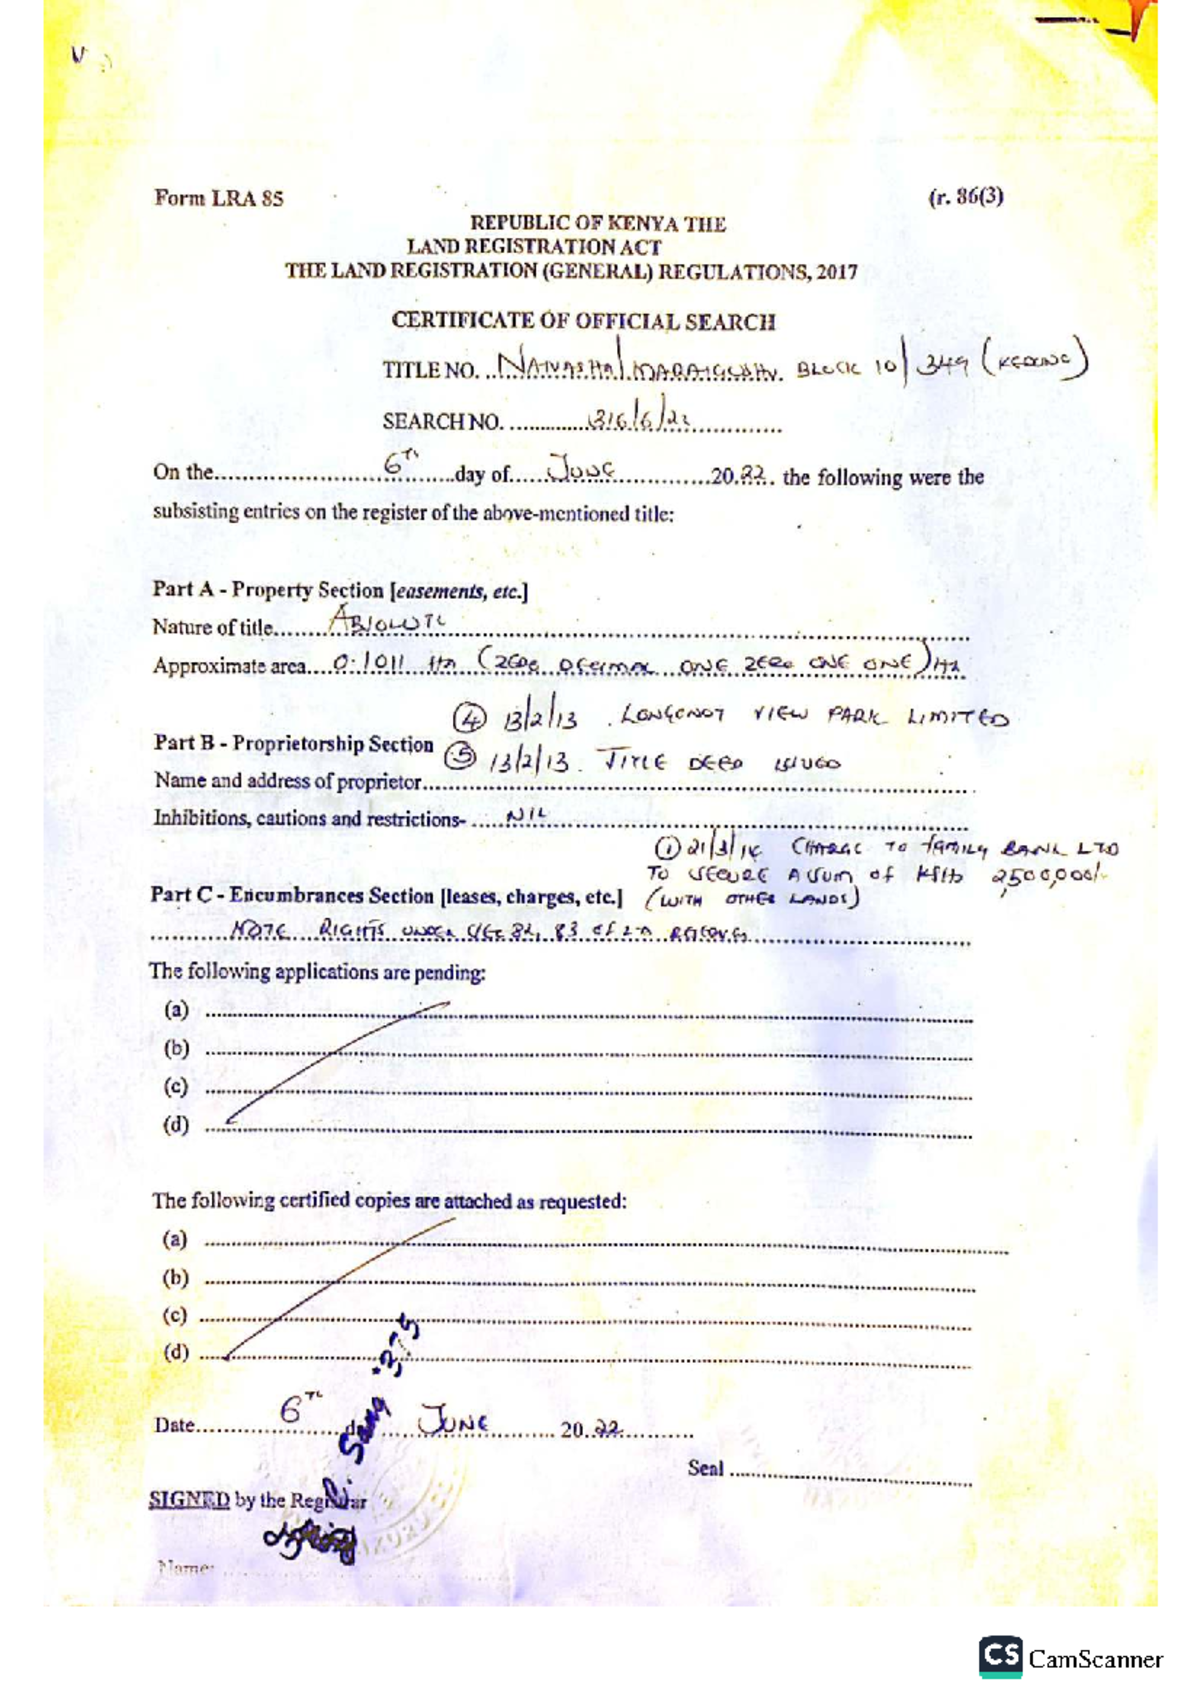 Form LRA 85 (r. 86(3)
REPUBLIC OF KENYA THE
LAND REGISTRATION ACT
THE LAND REGISTRATION (GENERAL) REGULATIONS, 2017
CERTIFICATE OF OFFICIAL SEARCH
TITLE NO. NAIVASHA/MARAIGUSHU BLOCK 10/349 (KEDONG)
SEARCH NO. 316/6/22
On the 6TH day of JUNE 2022. the following were the
subsisting entries on the register of the above-mentioned title:
Part A - Property Section [easements, etc.]
Nature of title ABSOLUTE
Approximate area 0.1011 Ha (ZERO DECIMAL ONE ZERO ONE ONE) Ha
④ 13/2/13 . LONGONOT VIEW PARK LIMITED
Part B - Proprietorship Section ⑤ 13/2/13. TITLE DEED ISSUED
Name and address of proprietor
Inhibitions, cautions and restrictions- NIL
① 21/3/14 CHARGE TO FAMILY BANK LTD
TO SECURE A SUM OF KSHS 2,500,000/-
Part C - Encumbrances Section [leases, charges, etc.] (WITH OTHER LANDS)
NOTE RIGHTS UNDER SEC 82, 83 OF
The following applications are pending:
(a)
(b)
(c)
(d)
The following certified copies are attached as requested:
(a)
(b)
(c)
(d)
Date 6TH JUNE 2022
Seal
R. Sang *375
SIGNED by the Registrar
Name:
CS CamScanner